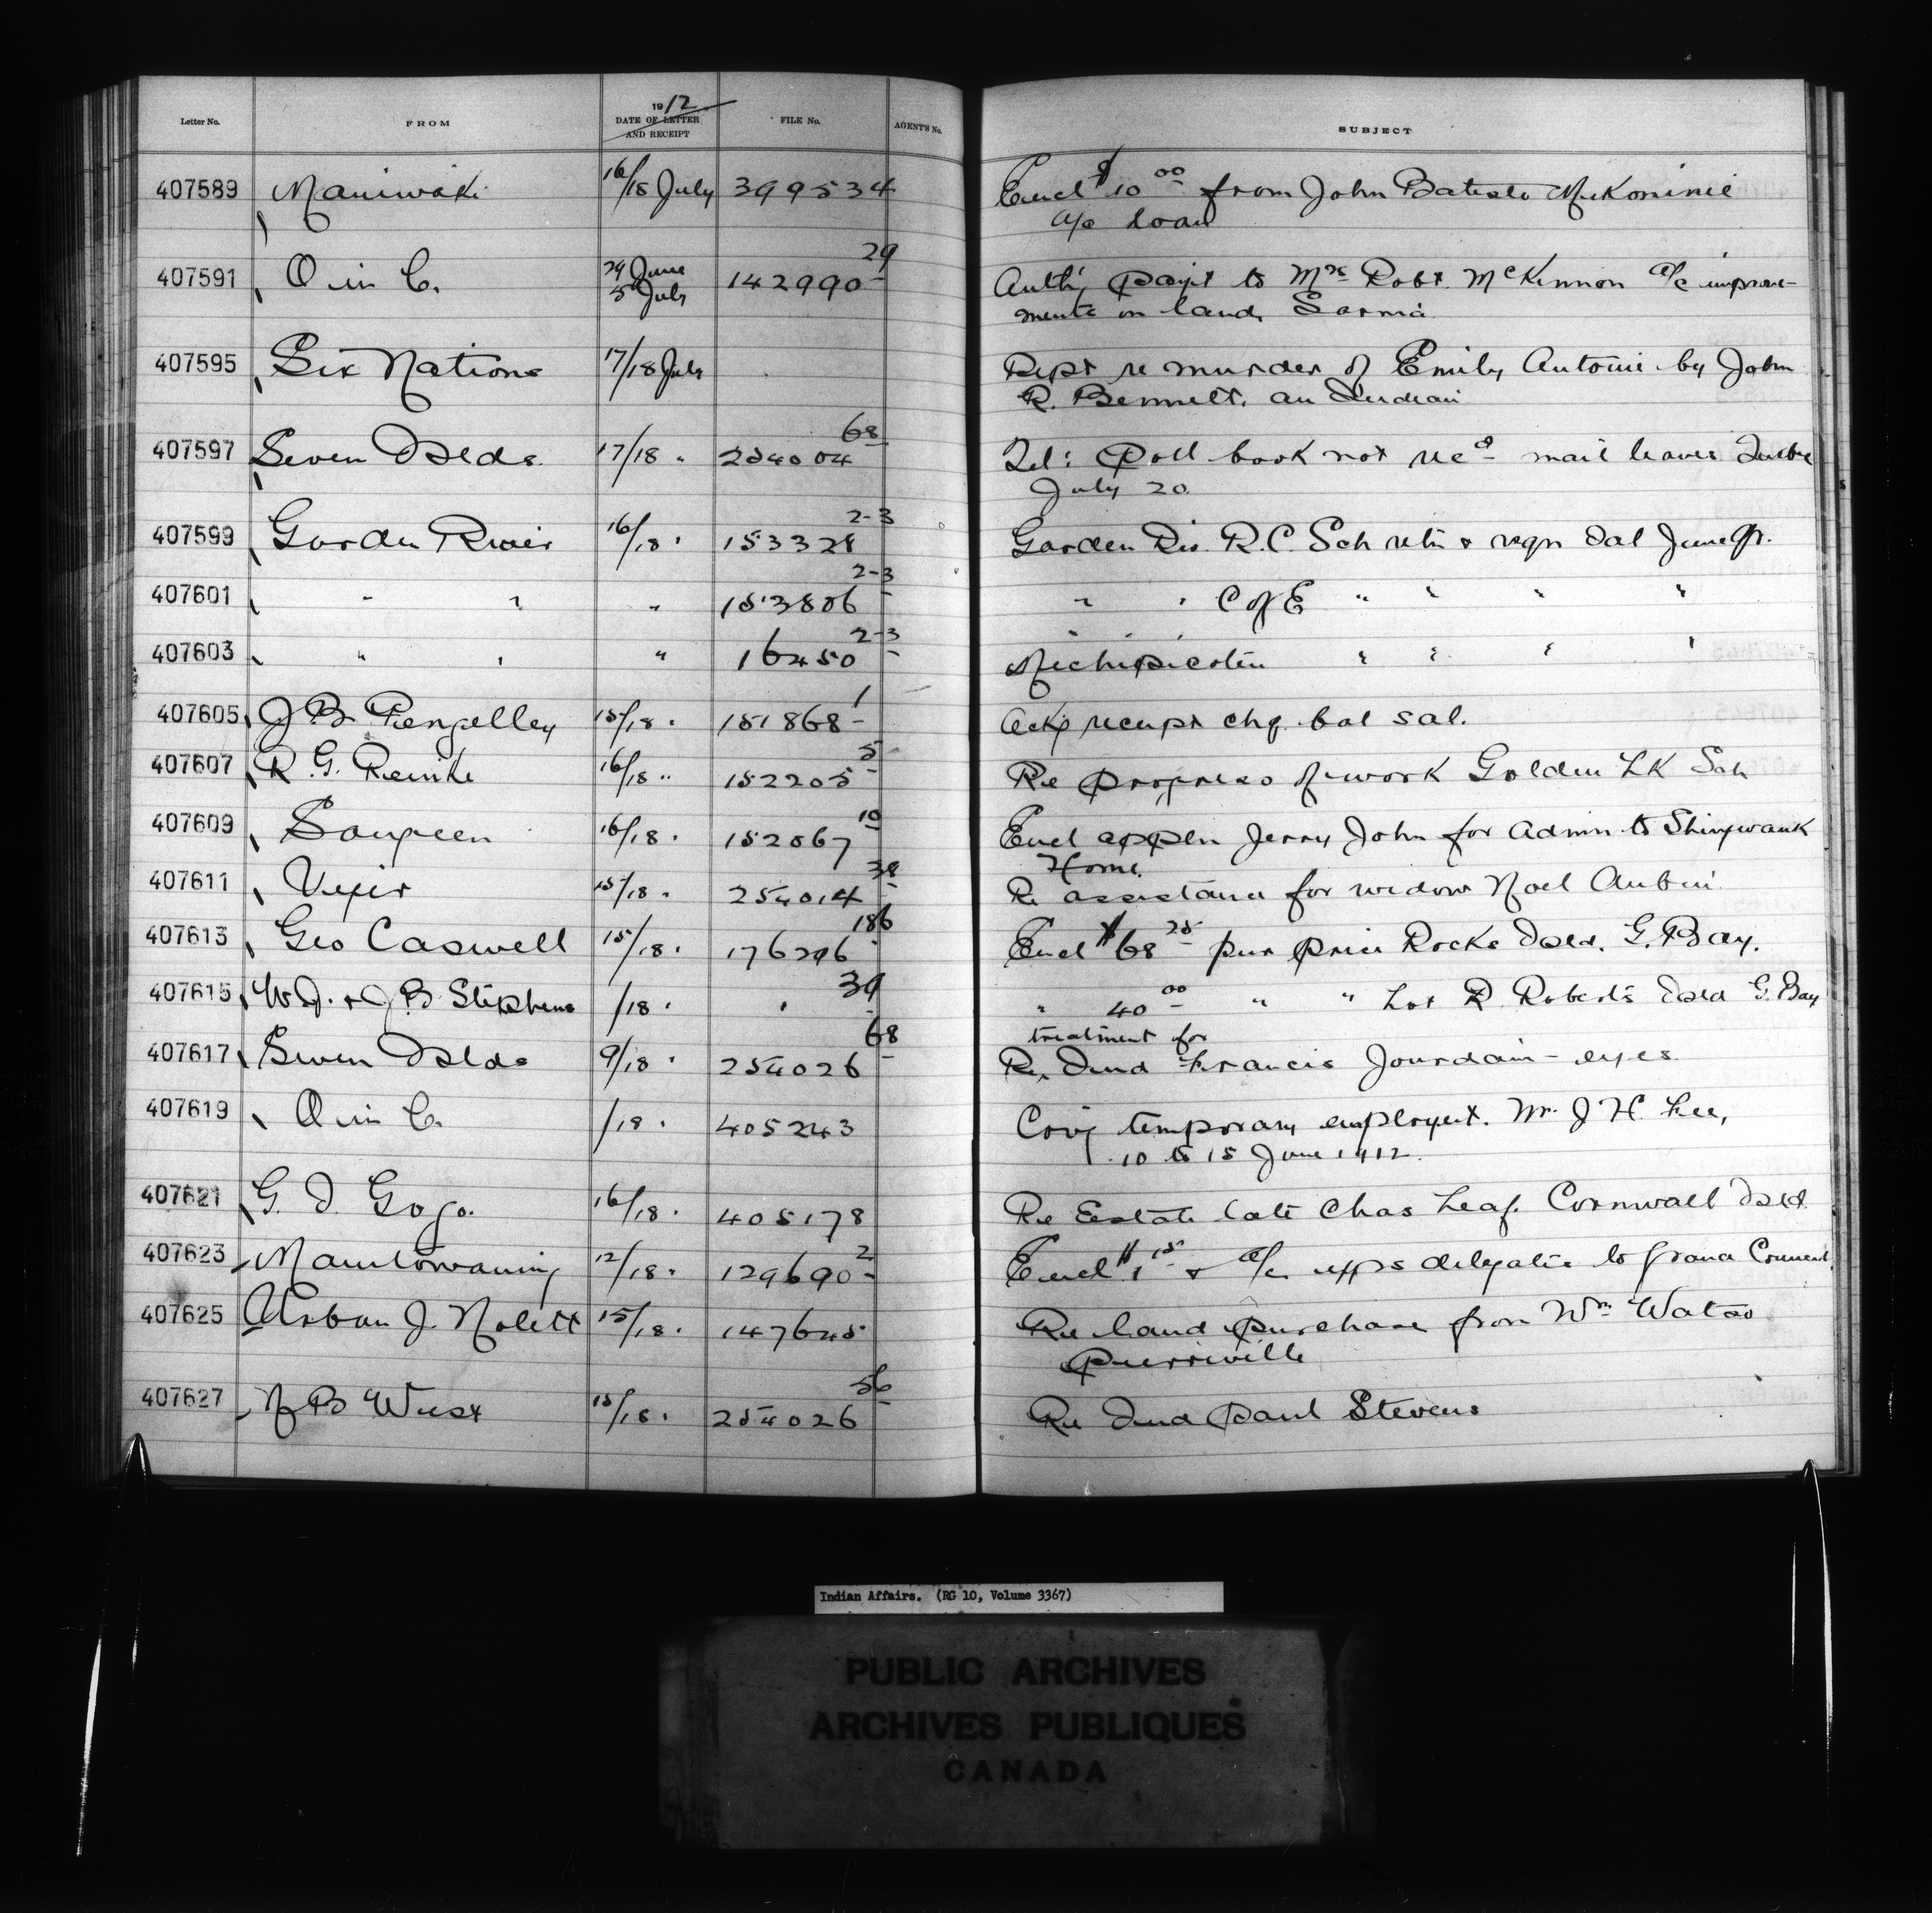 Letter No. FROM 1912 DATE OF LETTER AND RECEIPT FILE No. AGENT'S No. SUBJECT
407589 Maniwaki 16/18 July 399534 Encl $10 00 from John Batiste
a/c loan
407591 O in C. 29 June 5 July 142990-29 Auth'g payt to Mrs Robt. McKinnon a/c improve-
ments on land, Sarnia
407595 Six Nations 17/18 July Rept re murder of Emily Antoine by John
R. Bennett, an Indian
407597 Seven Islds. 17/18 " 254004-68 Tel: Poll book not recd mail leaves Quebec
July 20.
407599 Garden River 16/18 " 153328 2-3 Garden Riv. R.C. Sch retn & reqn Ial June Qr.
407601 " " " 153806 2-3 " " C of E " " " "
407603 " " " 16450 2-3 Michipicoten " " " "
407605 J B Pengelley 15/18 " 151868-1 Ackg receipt chq. bal sal.
407607 R. G. Reinke 16/18 " 152205-5 Re progress of work Golden LK Sch
407609 Saugeen 16/18 " 152067-10 Encl appln Jerry John for admn to Shingwauk
Home.
407611 15/18 " 254014-38 Re assistance for widow Noel Aubin.
407613 Geo Caswell 15/18 " 176296-186 Encl $68 25 pur price Rocks Isld. G. Bay.
407615 W J. & J. B. Stephens /18 " " 39 " 40 00 " " Lot R Roberts Isld G. Bay
treatment for
407617 Seven Islds 9/18 " 254026-68 Re Ind Francis Jourdain - eyes
407619 O in C. /18 " 405243 Covg temporary employt. Mr. J H. Lee,
10 to 15 June 1912.
407621 G. I. Gogo. 16/18 " 405178 Re Estate late Chas Leaf. Cornwall Isld
407623 Manitowaning 12/18 " 129690-2 Encl $1 15 & a/c exps delegates to Grand Council.
407625 Urban J. Nolett 15/18 " 147645 Re land purchase from Wm Watso
Pierreville
407627 N B West 15/18 " 254026-56 Re Ind Paul Stevens
Indian Affairs. (RG 10, Volume 3367)
PUBLIC ARCHIVES
ARCHIVES PUBLIQUES
CANADA